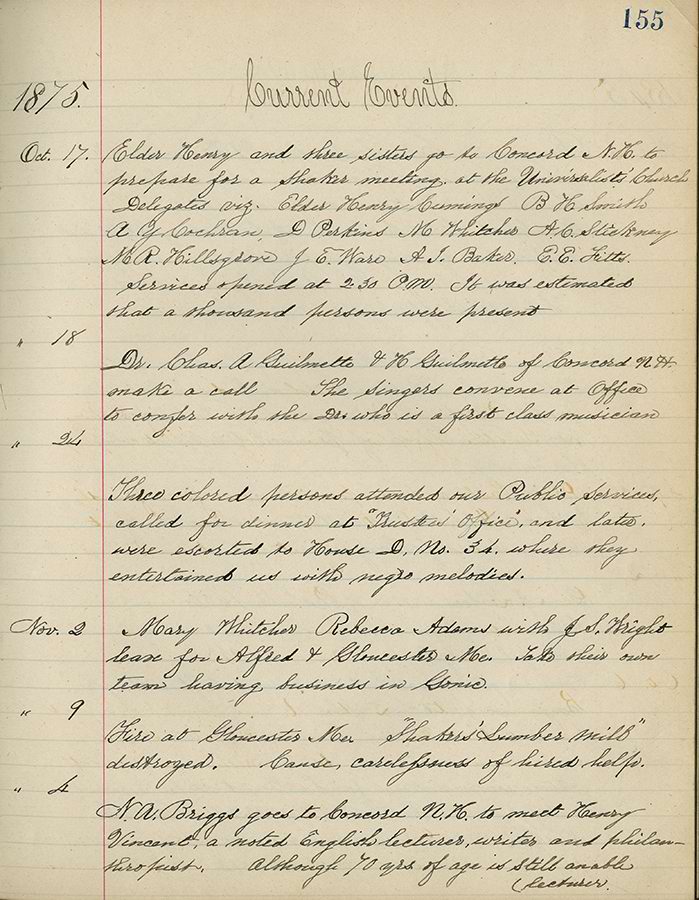 155
Current Events.
1875.
Oct. 17. Elder Henry and three sisters go to Concord N.H. to
prepare for a Shaker meeting, at the Universalists' Church
Deligates viz. Elder Henry Cumings B H Smith
A Y Cochran, D Perkins M Whitcher A. C. Stickney
M. R. Hillsgrove J E. Ware A J. Baker. E. E. Fitts.
Services opened at 2 30 P.M. It was estimated
that a thousand persons were present
" 18
Dr. Chas. A Guilmette & H Guilmette of Concord N.H.
make a call The Singers convene at Office
to confer with the Dr. who is a first class musician
" 24
Three colored persons attended our Public Services,
called for dinner at "Trustees' Office", and later.
were escorted to House D, No. 34. where they
entertained us with negro melodies.
Nov. 2 Mary Whitcher Rebecca Adams with J. S. Wright
leave for Alfred & Gloucester Me. Take their own
team having business in Gonic.
" 9
Fire at Gloucester Me. "Shakers' Lumber mill"
destroyed. Cause, carelessness of hired help.
" 4
N. A. Briggs goes to Concord N.H. to meet Henry
Vincent, a noted English lecturer, writer and philan-
thropist. Although 70 yrs. of age is still an able
(lecturer.